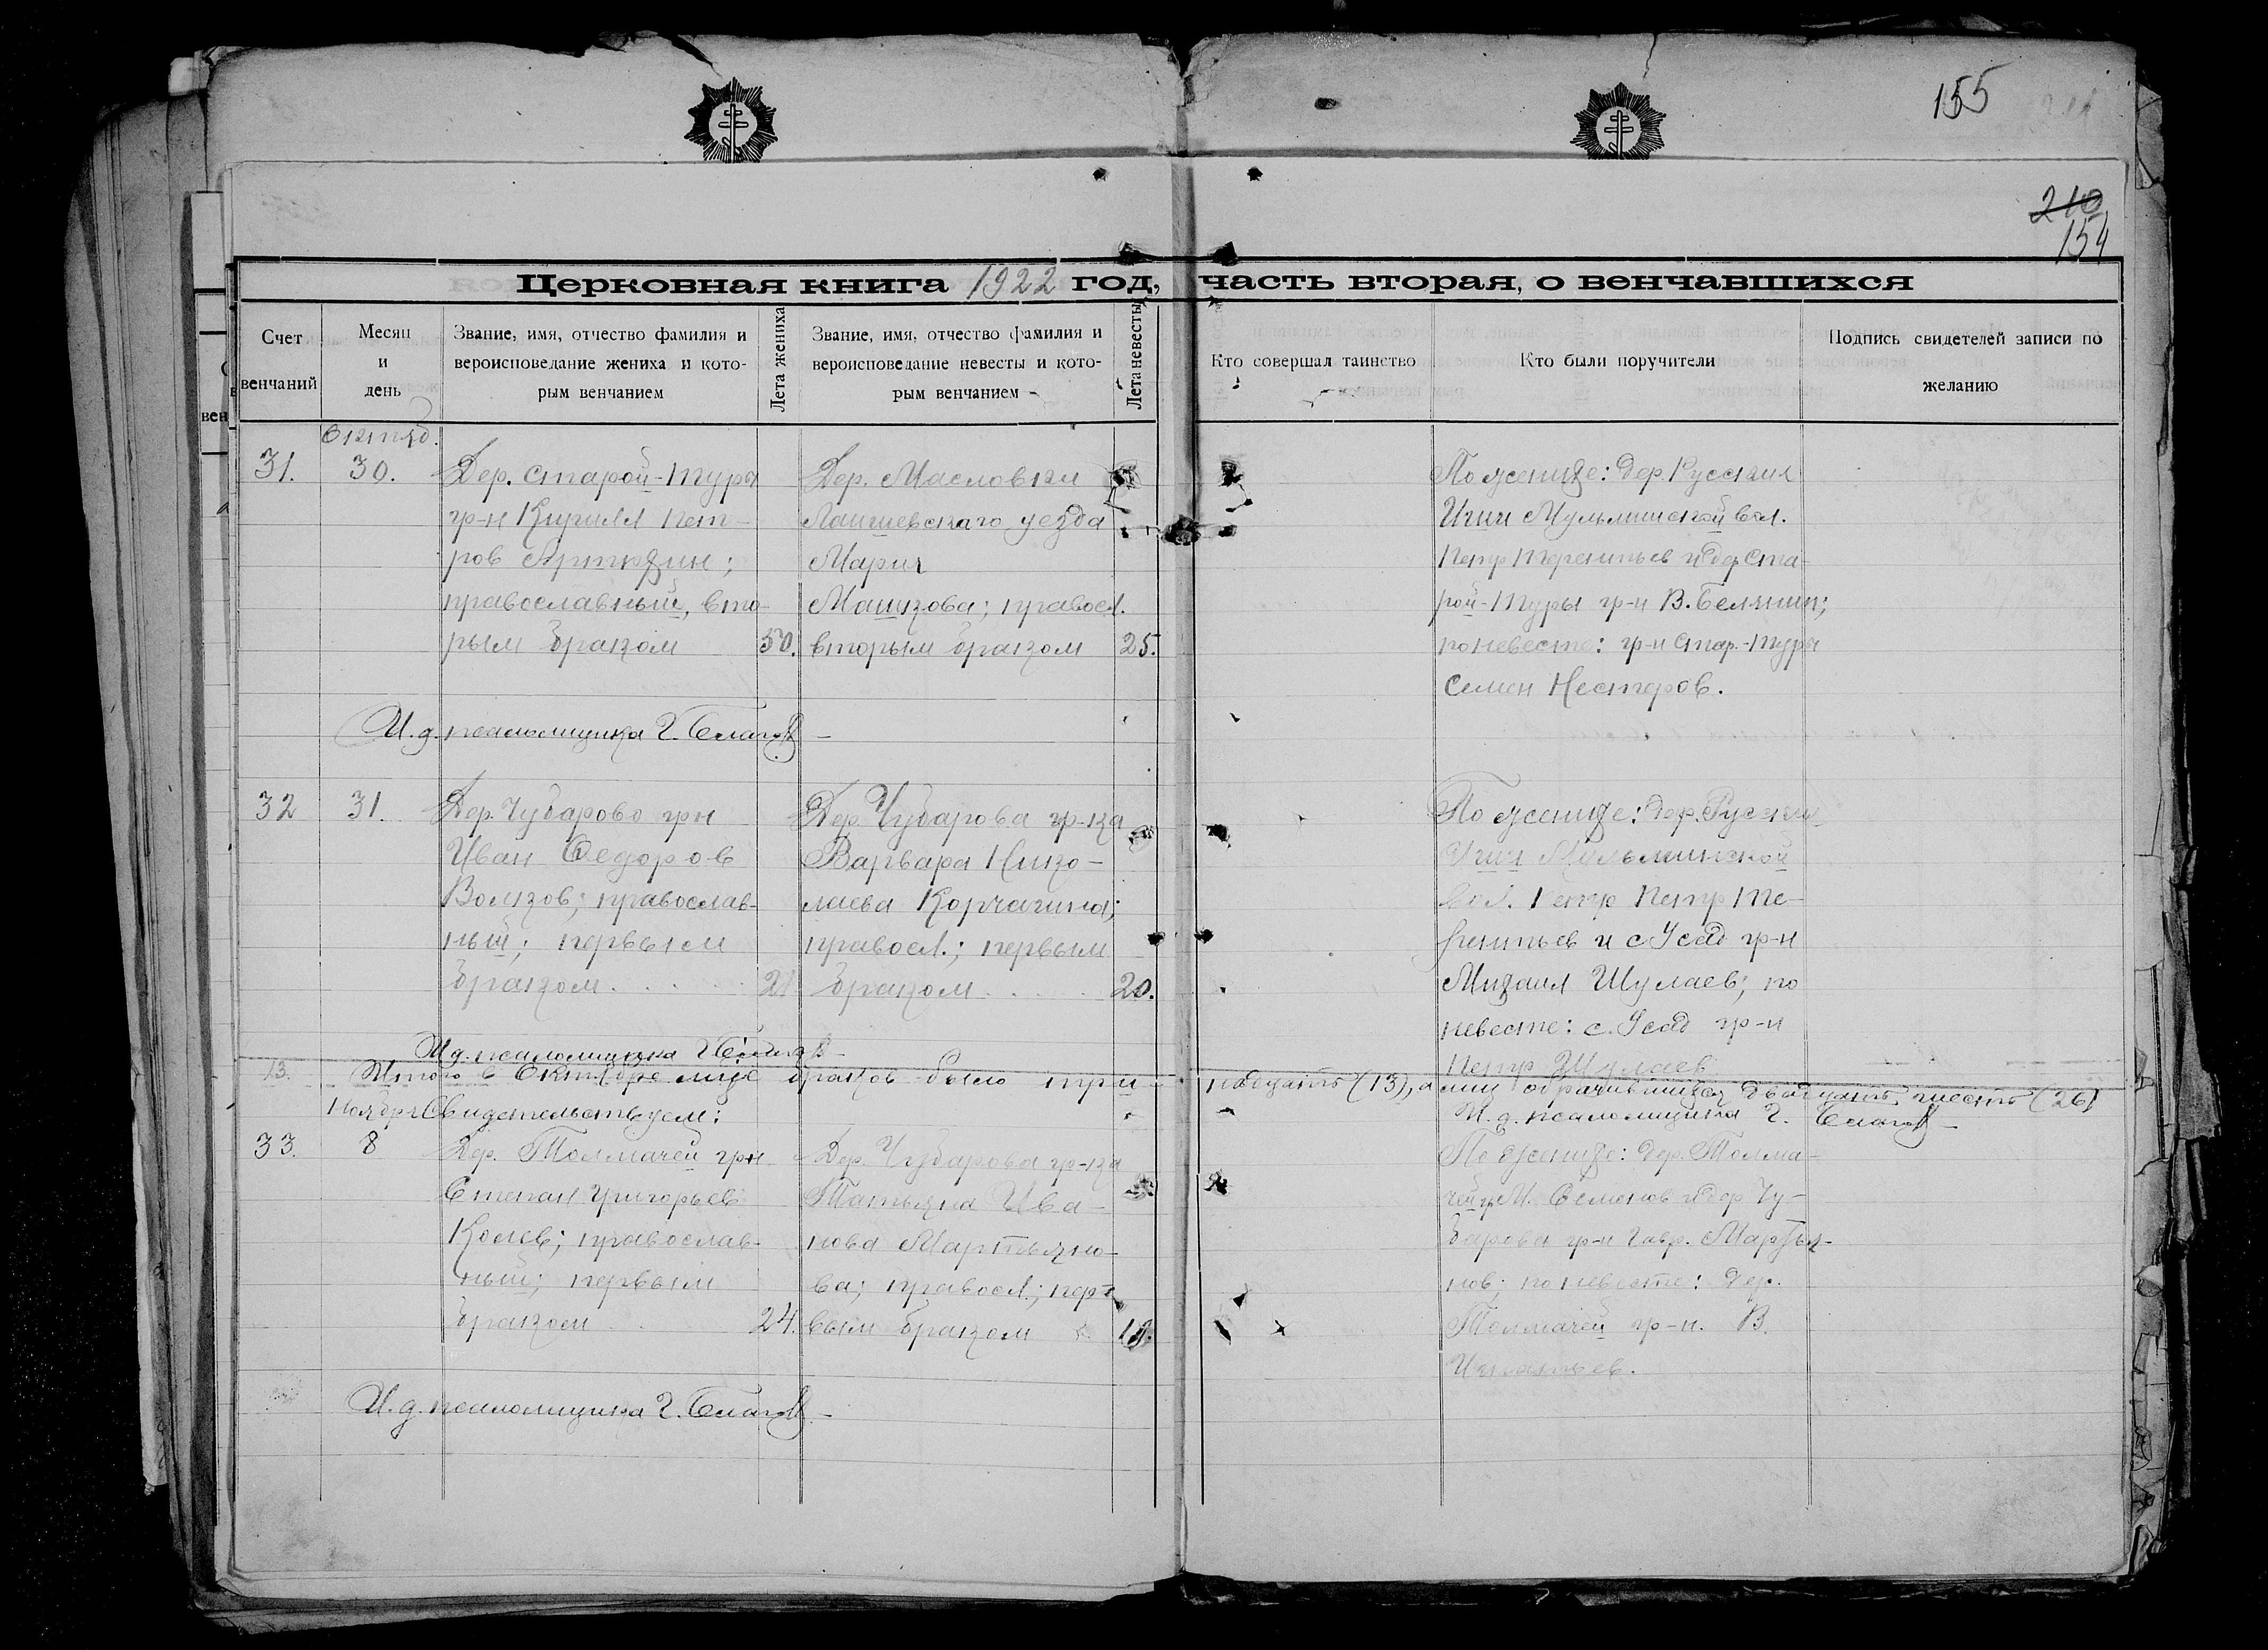 155
210
154
Церковная книга 1922 год, часть вторая, о венчавшихся
Счет венчаний
Месяц и день
Звание, имя, отчество фамилия и вероисповедание жениха и кото-рым венчанием
Лета жениха
Звание, имя, отчество фамилия и вероисповедание невесты и кото-рым венчанием
Лета невесты
Кто совершал таинство
Кто были поручители
Подпись свидетелей записи по желанию
31.
30.
Дер. Старой-Туры
гр-н Кирилл Пет-
ров Артюхин;
православный, вто-
рым браком
50.
Дер. Масловки
Лаишевскаго уезда
Мария
; правосл.
вторым браком
25.
По женихе: дер. Русских
Мульминской вол.
Петр Терентьев и дер. Ста-
рой-Туры гр-н В. Белянин;
по невесте: гр-н Стар.-Туры
Семен Нестеров.
И. д. псаломщика Г.
32
31.
Дер. Чубарово гр-н
Иван Федоров
Волков; православ-
ный; первым
браком
21
Дер. Чубарова гр-ка
Варвара Нико-
лаева Корчагина;
правосл.; первым
браком
20.
По женихе: дер. Русских
Мульминской
вол. Петр Петр Те-
рентьев и с. Усад гр-н
Михаил Шулаев; по
невесте: с. Усад гр-н
Петр Шулаев
И. д. псаломщика Г.
13.
Итого в Октябре м-це браков было три-
надцать (13), а лиц двадцать шесть (26)
Ноября Свидетельствуем:
И. д. псаломщика Г.
33.
8
Дер. Толмачей гр-н
Степан Григорьев
Колев; православ-
ный; первым
браком
24.
Дер. Чубарова гр-ка
Татьяна Ива-
нова Мартьяно-
ва; правосл.; пер-
вым браком
19.
По женихе: дер. Толма-
чей гр. И. Семенов и дер. Чу-
барова гр-н Гавр. Мартья-
нов; по невесте: дер.
Толмачей гр-н. В.
Игнатьев.
И. д. псаломщика Г.